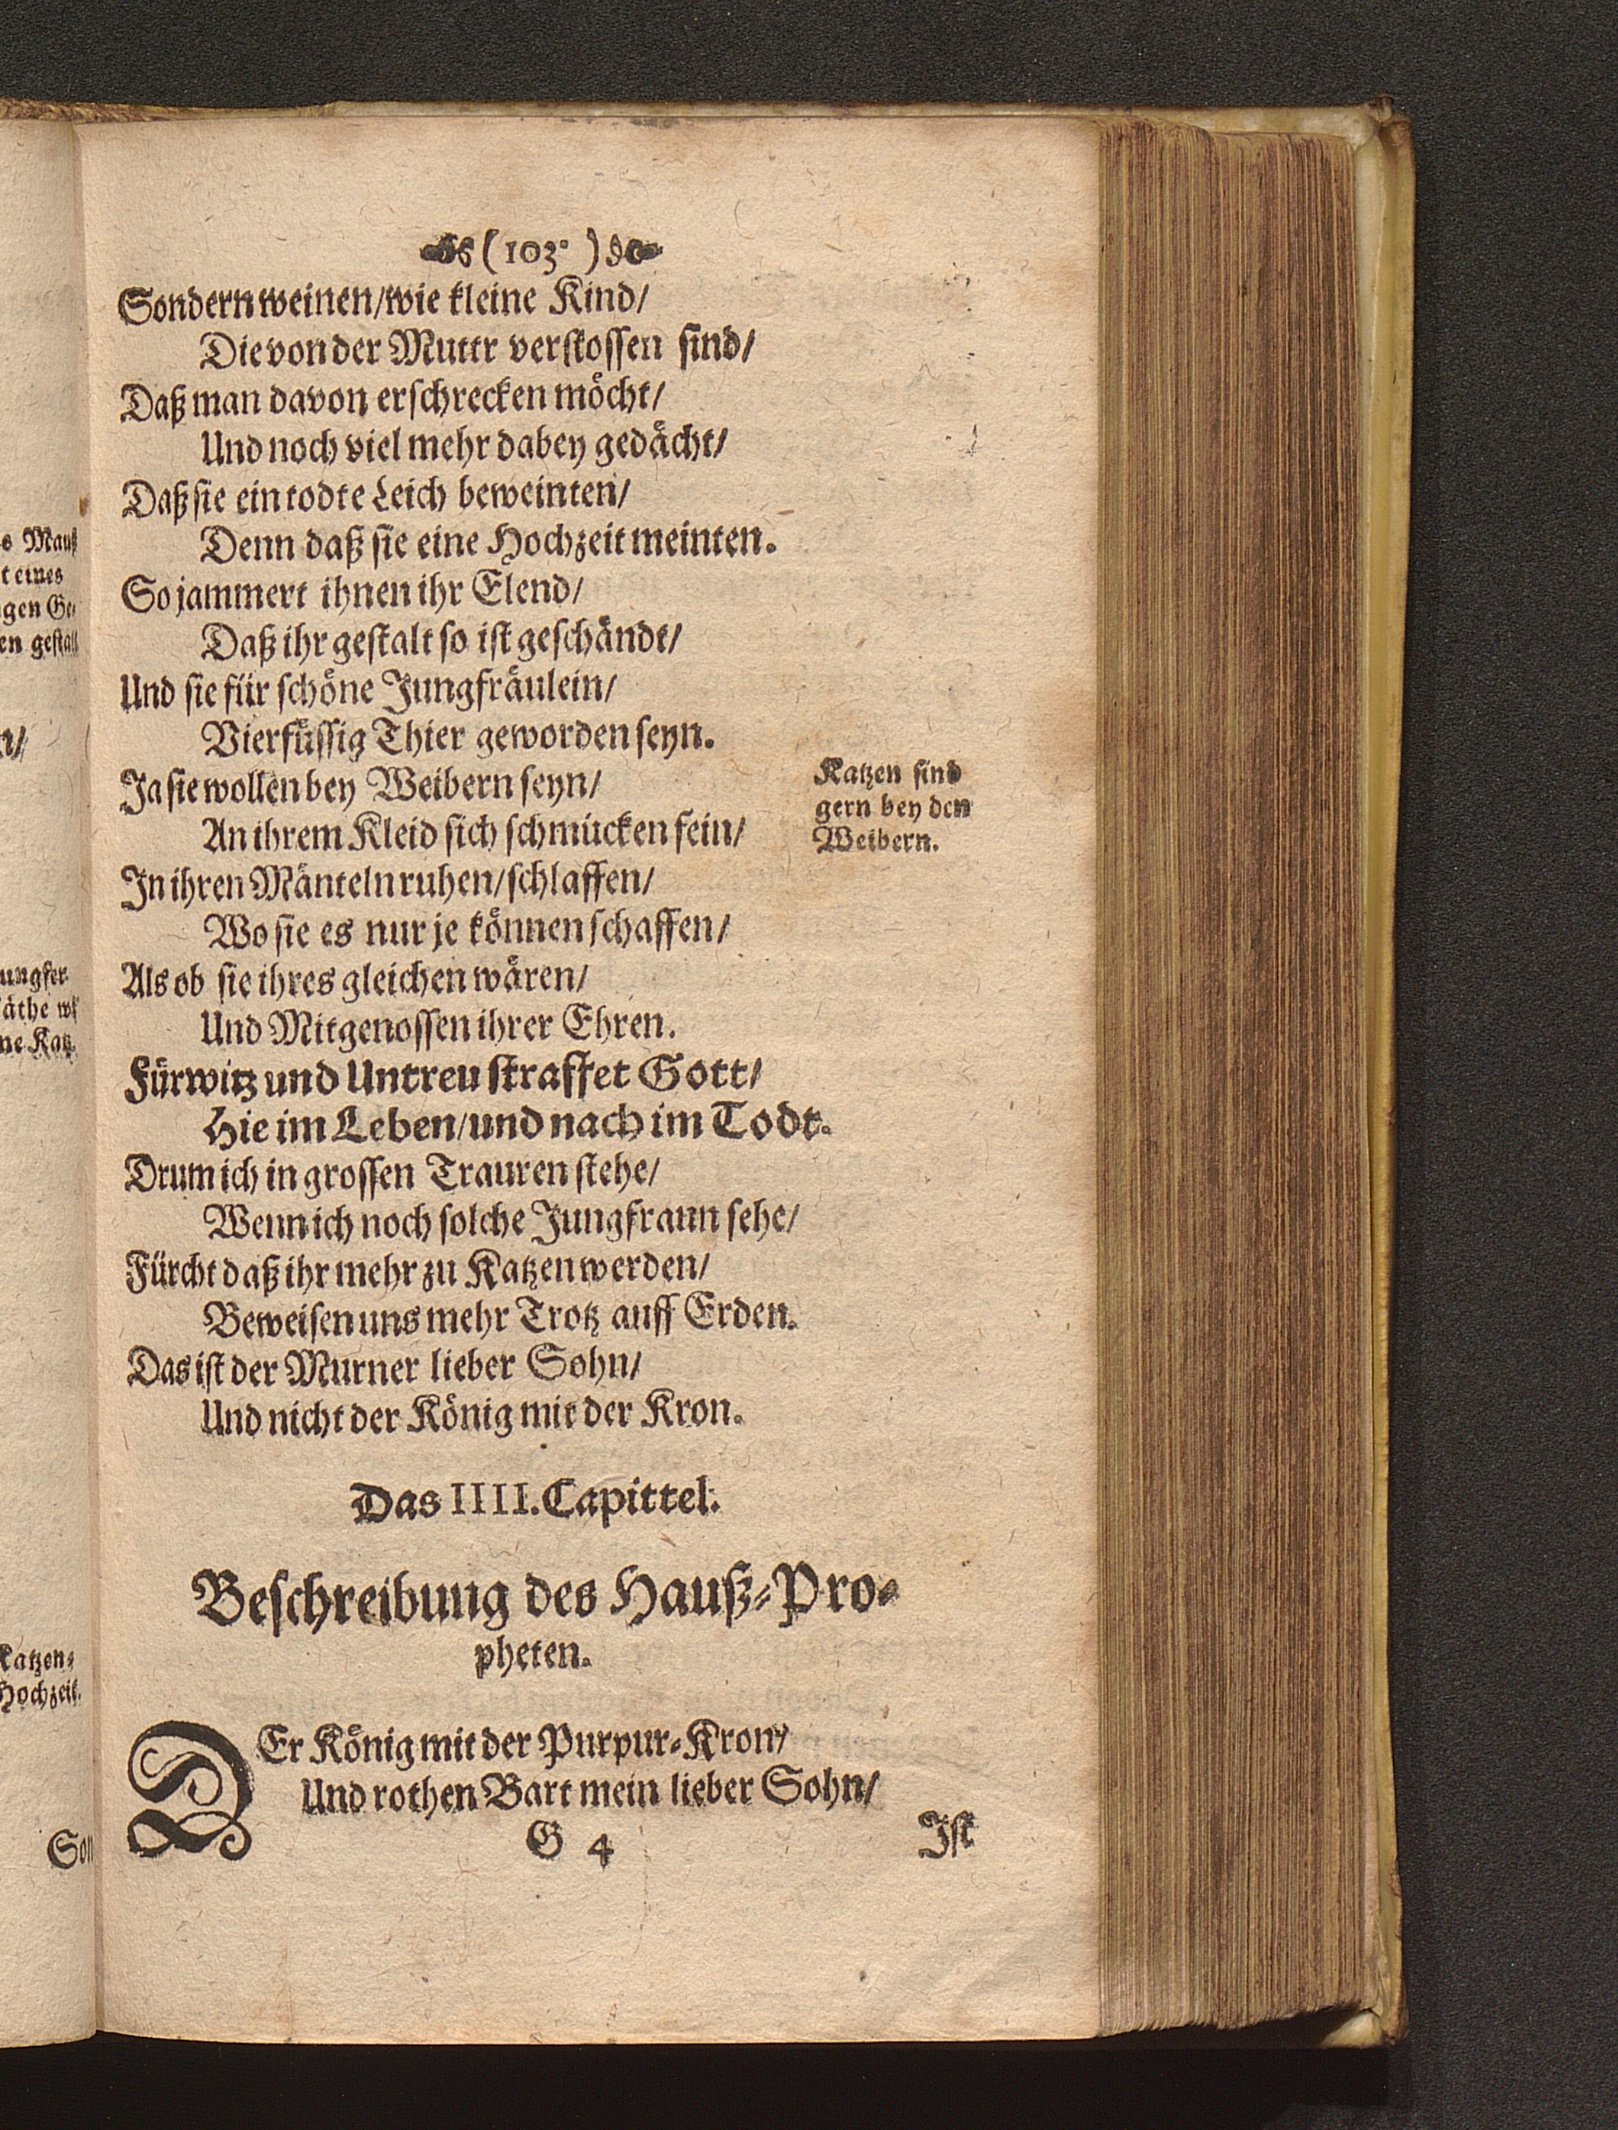 (103.)
Sondern weinen/wie kleine Kind/
Die von der Muttr verstossen sind/
Daß man davon erschrecken möcht/
Und noch viel mehr dabey gedächt/
Daß sie ein todte Leich beweinten/
Denn daß sie eine Hochzeit meinten.
So jammert ihnen ihr Elend/
Daß ihr gestalt so ist geschändt/
Und sie für schöne Jungfräulein/
Vierfüssig Thier geworden seyn.
Ja sie wollen bey Weibern seyn/
An ihrem Kleid sich schmücken fein/
In ihren Mänteln ruhen/schlaffen/
Wo sie es nur je können schaffen/
Als ob sie ihres gleichen wären/
Und Mitgenossen ihrer Ehren.
Katzen sind
gern bey den
Weibern.
Fürwitz und Untreu straffet Gott/
Hie im Leben/und nach im Todt.
Drum ich in grossen Trauren stehe/
Wenn ich noch solche Jungfraun sehe/
Fürcht daß ihr mehr zu Katzen werden/
Beweisen uns mehr Trotz auff Erden.
Das ist der Murner lieber Sohn/
Und nicht der König mit der Kron.
Das IIII. Capittel.
Beschreibung des Hauß-Pro-
pheten.
DEr König mit der Purpur-Kron/
Und rothen Bart mein lieber Sohn/
G 4
Ist
s Mauß
t eines
gen Ge-
en gestalt
n/
ungfer
äthe
ne Katz.
Katzen-
Hochzeit.
Son